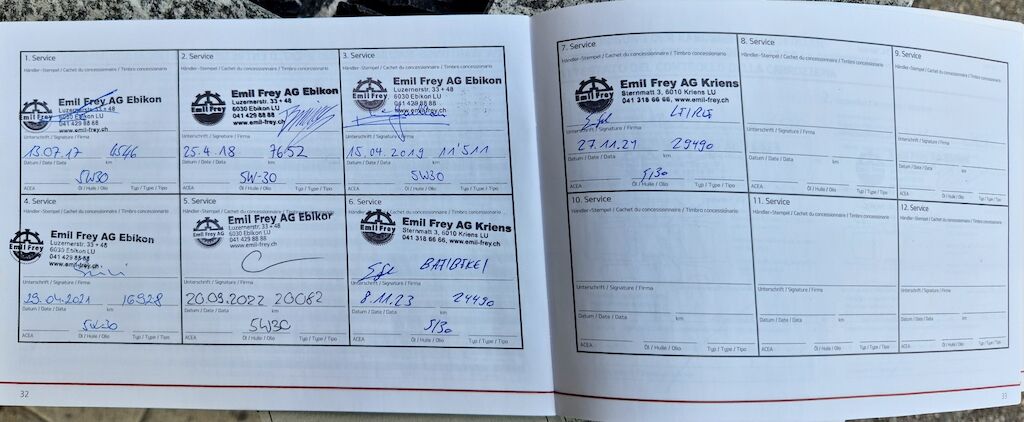 1. Service
Händler-Stempel / Cachet du concessionnaire / Timbro concessionario
Emil Frey
Emil Frey AG Ebikon
Luzernerstr. 33 + 48
6030 Ebikon LU
041 429 88 88
www.emil-frey.ch
Unterschrift / Signature / Firma
13.07.17 4546
Datum / Date / Data km
5W30
ACEA Öl / Huile / Olio Typ / Type / Tipo
2. Service
Händler-Stempel / Cachet du concessionnaire / Timbro concessionario
Emil Frey
Emil Frey AG Ebikon
Luzernerstr. 33 + 48
6030 Ebikon LU
041 429 88 88
www.emil-frey.ch
Unterschrift / Signature / Firma
25.4.18 7652
Datum / Date / Data km
5W-30
ACEA Öl / Huile / Olio Typ / Type / Tipo
3. Service
Händler-Stempel / Cachet du concessionnaire / Timbro concessionario
Emil Frey
Emil Frey AG Ebikon
Luzernerstr. 33 + 48
6030 Ebikon LU
041 429 88 88
www.emil-frey.ch
Unterschrift / Signature / Firma
15.04.2019 11'511
Datum / Date / Data km
5W30
ACEA Öl / Huile / Olio Typ / Type / Tipo
4. Service
Händler-Stempel / Cachet du concessionnaire / Timbro concessionario
Emil Frey
Emil Frey AG Ebikon
Luzernerstr. 33 + 48
6030 Ebikon LU
041 429 88 88
www.emil-frey.ch
Unterschrift / Signature / Firma
29.04.2021 16928
Datum / Date / Data km
5W-30
ACEA Öl / Huile / Olio Typ / Type / Tipo
5. Service
Händler-Stempel / Cachet du concessionnaire / Timbro concessionario
Emil Frey
Emil Frey AG Ebikon
Luzernerstr. 33 + 48
6030 Ebikon LU
041 429 88 88
www.emil-frey.ch
Unterschrift / Signature / Firma
20.09.2022 20082
Datum / Date / Data km
5W30
ACEA Öl / Huile / Olio Typ / Type / Tipo
6. Service
Händler-Stempel / Cachet du concessionnaire / Timbro concessionario
Emil Frey
Emil Frey AG Kriens
Sternmatt 3, 6010 Kriens LU
041 318 66 66, www.emil-frey.ch
Unterschrift / Signature / Firma
8.11.23 24490
Datum / Date / Data km
5/30
ACEA Öl / Huile / Olio Typ / Type / Tipo
32
7. Service
Händler-Stempel / Cachet du concessionnaire / Timbro concessionario
Emil Frey
Emil Frey AG Kriens
Sternmatt 3, 6010 Kriens LU
041 318 66 66, www.emil-frey.ch
Unterschrift / Signature / Firma
29490
Datum / Date / Data km
5/30
ACEA Öl / Huile / Olio Typ / Type / Tipo
8. Service
Händler-Stempel / Cachet du concessionnaire / Timbro concessionario
Unterschrift / Signature / Firma
Datum / Date / Data km
ACEA Öl / Huile / Olio Typ / Type / Tipo
9. Service
Händler-Stempel / Cachet du concessionnaire / Timbro concessionario
Unterschrift / Signature / Firma
Datum / Date / Data km
ACEA Öl / Huile / Olio Typ / Type / Tipo
10. Service
Händler-Stempel / Cachet du concessionnaire / Timbro concessionario
Unterschrift / Signature / Firma
Datum / Date / Data km
ACEA Öl / Huile / Olio Typ / Type / Tipo
11. Service
Händler-Stempel / Cachet du concessionnaire / Timbro concessionario
Unterschrift / Signature / Firma
Datum / Date / Data km
ACEA Öl / Huile / Olio Typ / Type / Tipo
12. Service
Händler-Stempel / Cachet du concessionnaire / Timbro concessionario
Unterschrift / Signature / Firma
Datum / Date / Data km
ACEA Öl / Huile / Olio Typ / Type / Tipo
33